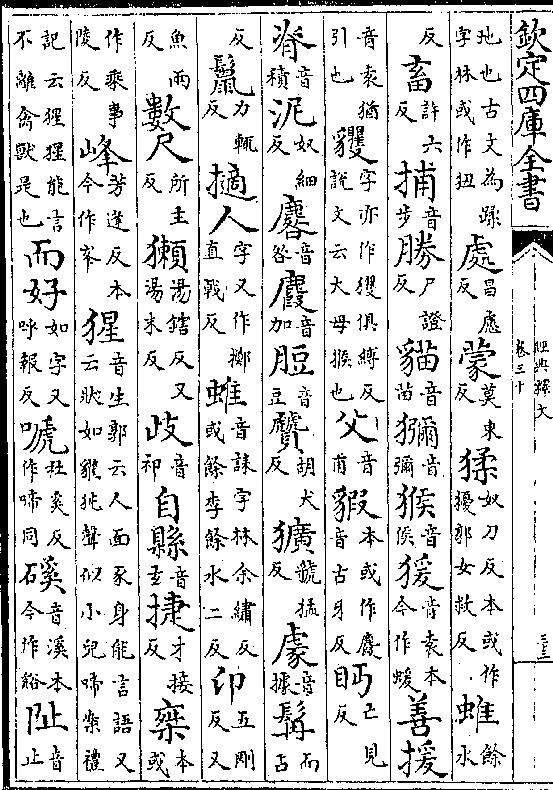 欽定四庫全書
經典釋文
卷三十
地也古文為蹂字林或作狃處昌慮反蒙莫東反猱奴刀反本或作擾郭女救反蜼餘水
反畜許六反捕音步勝尸證反貓音苗獼音彌猴音侯猨音袁本今作蝯善援
音袁猶引也貜字亦作玃俱縛反說文云大母猴也父音甫貑本或作麚音古牙反眄亡見反
脊音積泥奴細反麔音咎麚音加脰音豆贙胡犬反獷虢猛反豦音據髯而占
反鬣力輒反擿人字又作擲直戰反蜼音誄字林余繡反或餘季餘水二反卬五剛反又
魚兩反數尺所主反獺湯鎋反又湯末反歧音祁自縣音玄捷才接反椉本或
作乘事陵反峰芳逢反本今作峯猩音生郭云人面豕身能言語又云狀如雞㹠聲似小兒啼案禮
記云猩猩能言不離禽獸是也而好如字又呼報反嗁杜奚反作啼同磎音溪本今作谿阯音止